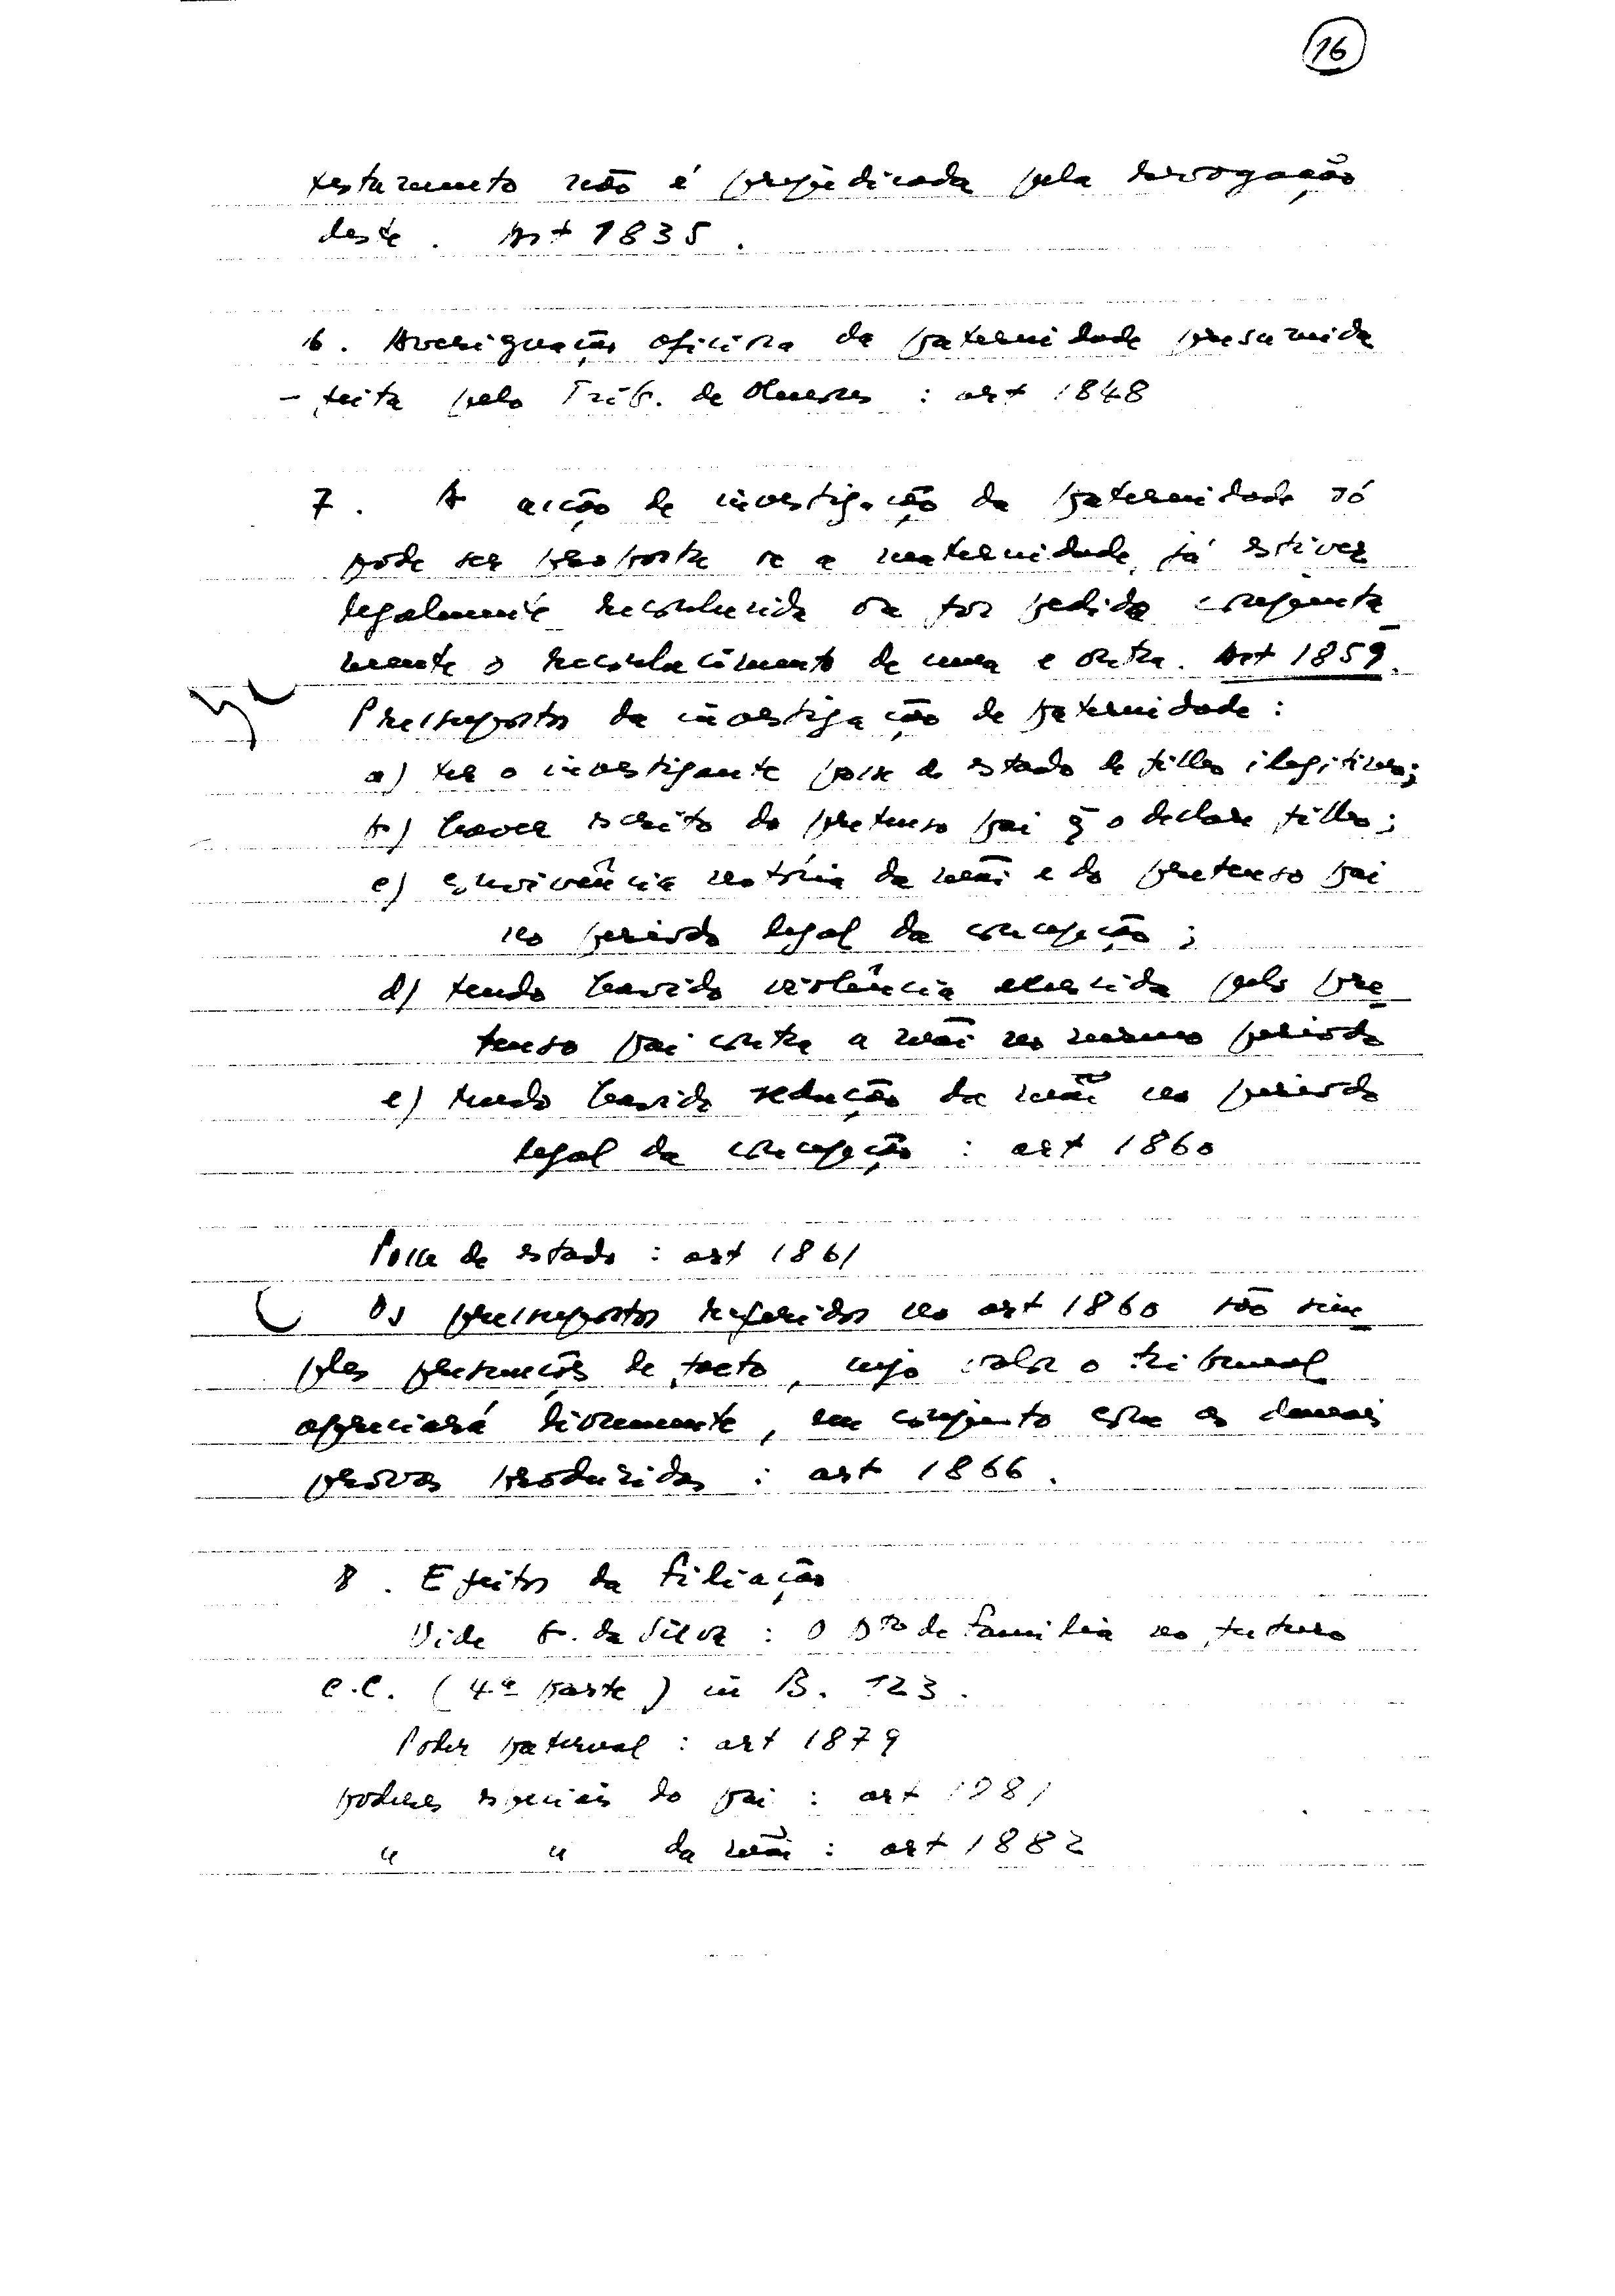 16
testamento não é prejudicada pela revogação
deste. Art 1835.
6. Averiguação oficiosa da paternidade presumida
- feita pelo Trib. de Menores : art 1848
7. A acção de investigação da paternidade só
pode ser proposta se a maternidade já estiver
legalmente reconhecida ou for pedido conjunta
mente o reconhecimento de uma e outra. Art 1859.
Pressupostos da investigação de paternidade :
a) ter o investigante posse de estado de filho ilegítimo;
b) haver escrito do pretenso pai q̃ o declare filho;
c) convivência notória da mãe e do pretenso pai
no período legal da concepção ;
d) tendo havido violência exercida pelo pre
tenso pai contra a mãe no mesmo período
e) tendo havido sedução da mãe no período
legal da concepção : art 1860
Posse de estado : art 1861
Os pressupostos referidos no art 1860 são sim
ples presunções de facto, cujo valor o tribunal
apreciará livremente, em conjunto com as demais
provas produzidas : art 1866.
8. Efeitos da filiação
Vide G. da Silva : O Dto de família no futuro
C.C. (4ª parte) in B. 123.
Poder paternal : art 1879
poderes especiais do pai : art 1881
" " da mãe : art 1882